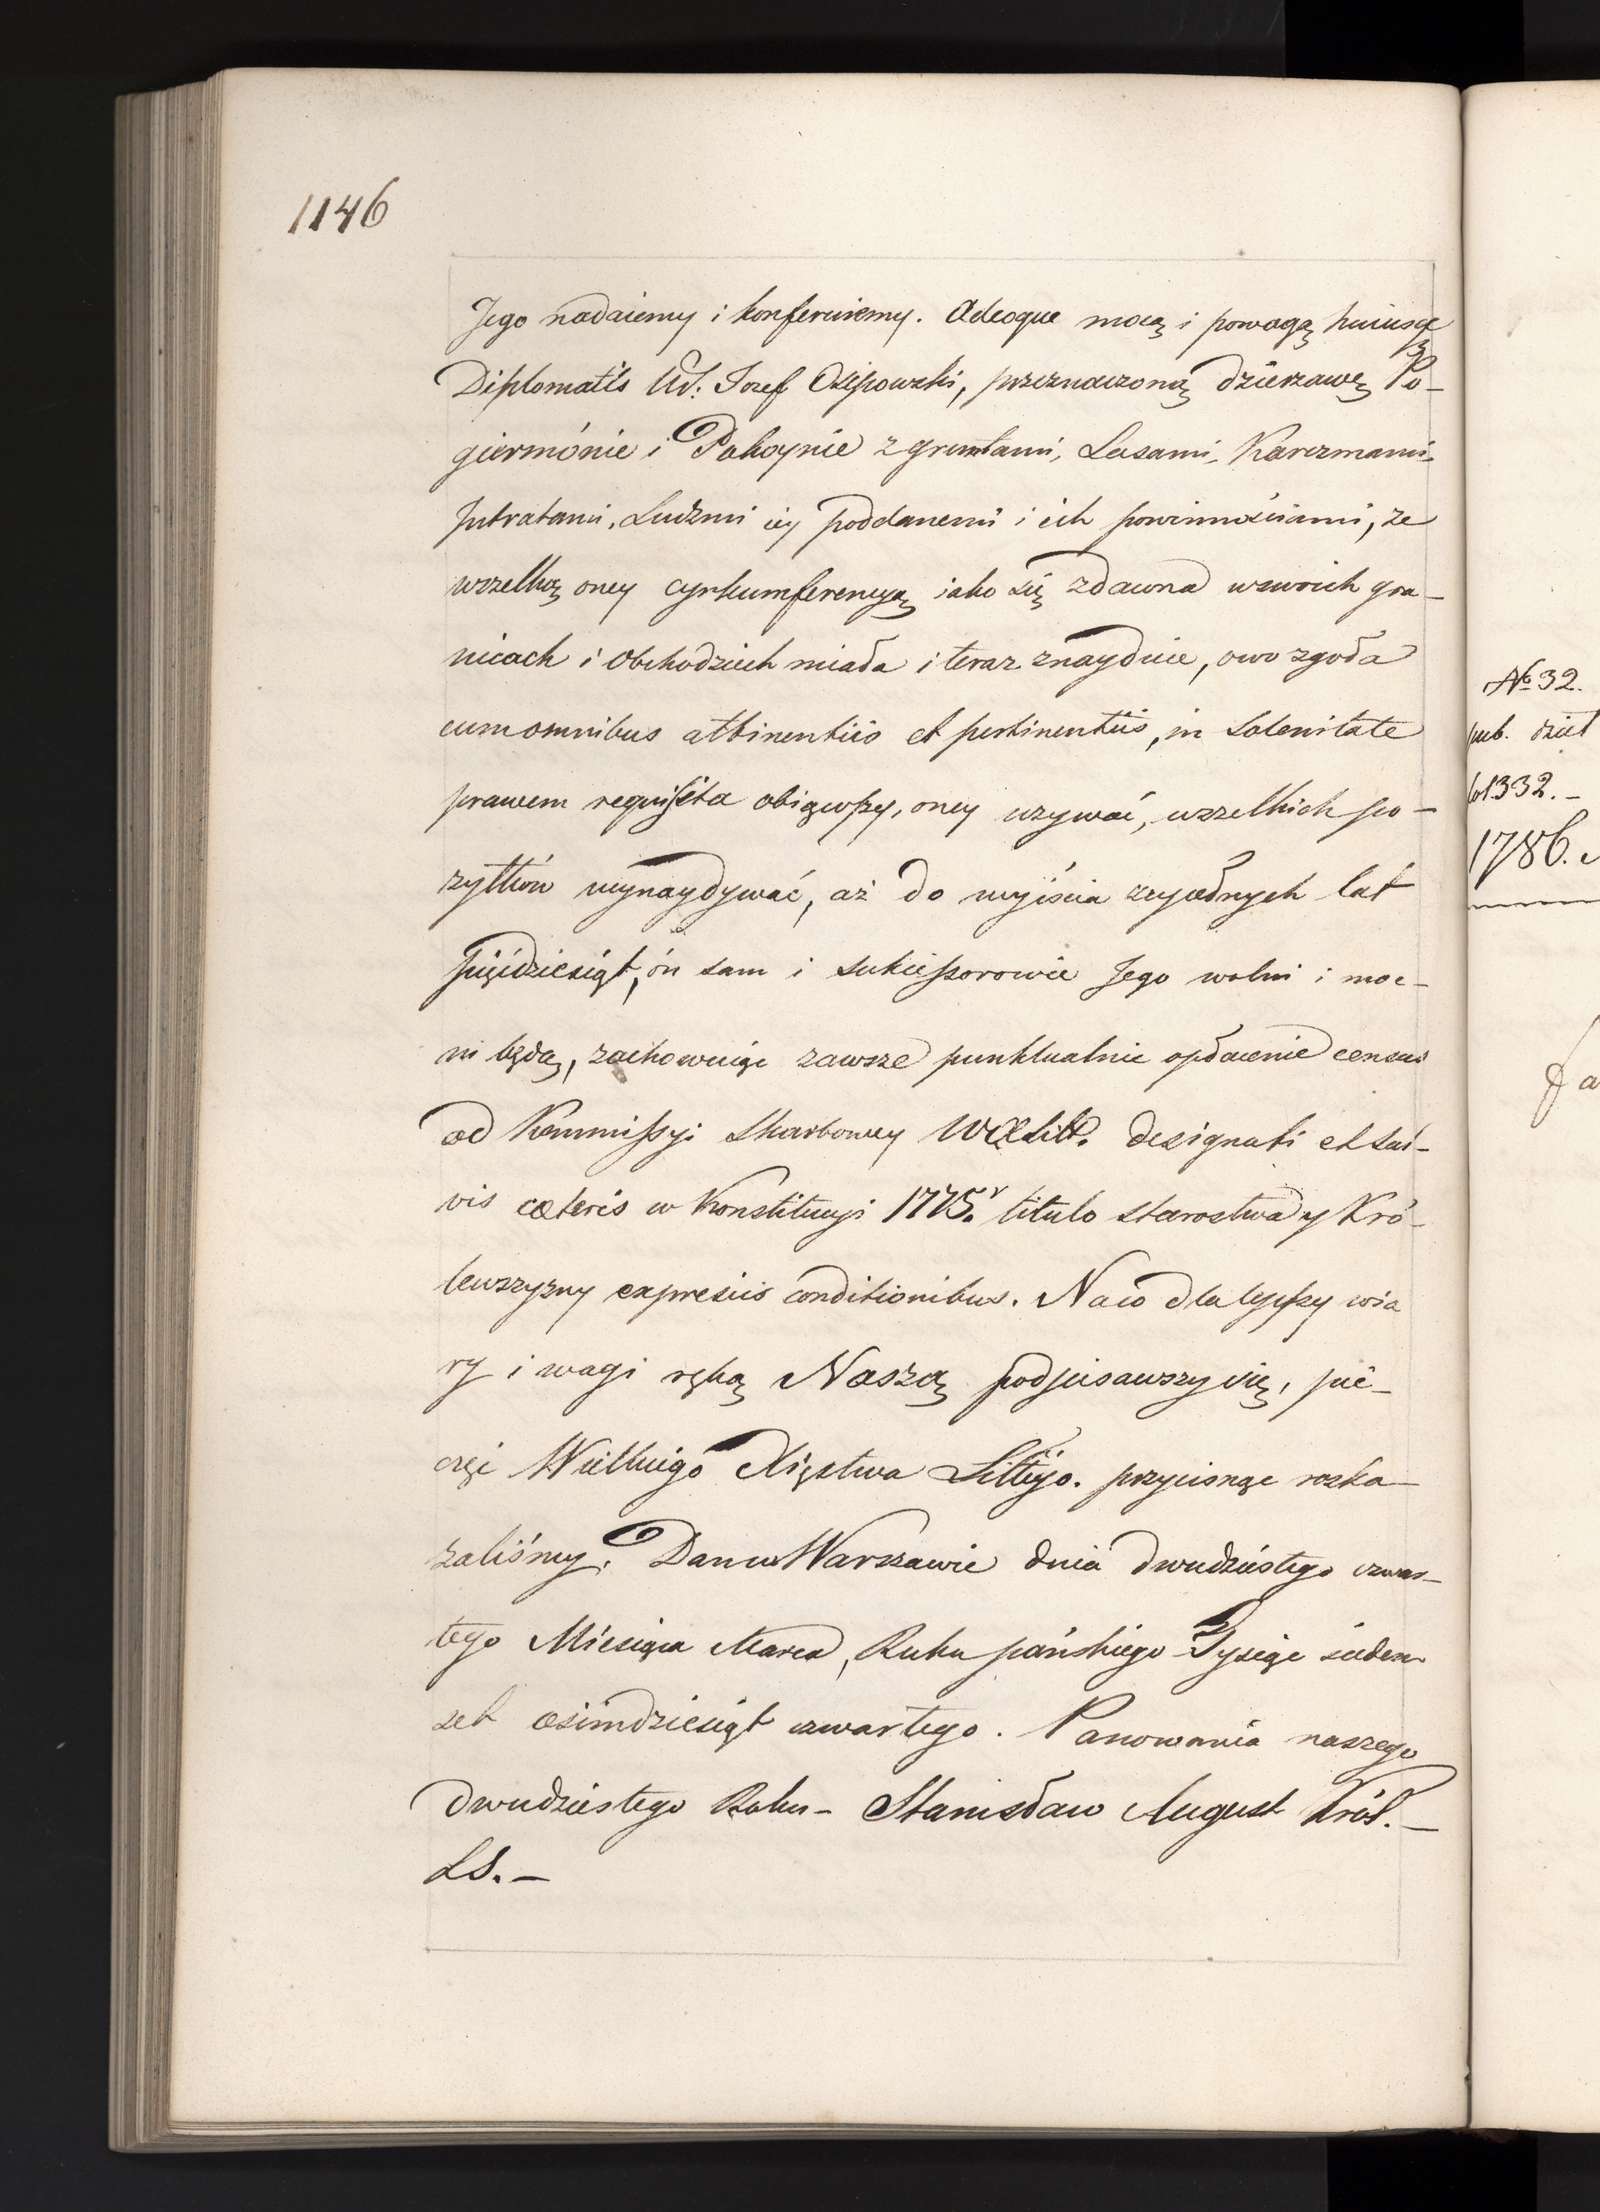 1146
Jego nadaiemy i konferuiemy. Adeoque mocą i powagą huiusce
Diplomatis Ur: Jozef Osipowski, przeznaczoną dzierzawę Po-
giermónie i Pokoynie z gruntami, Lasami, Karczmami,
Jntratami, Ludzmi iey poddanemi i ich powinnościami, ze
wszelką oney cyrkumferencyą iako się zdawna w swoich gra-
nicach i obchodziech miała i teraz znayduie, owo zgoła
cum omnibus attinentiis et pertinentiis, in solenitate
prawem requisita obiąwszy, oney uzywać, wszelkich po-
zytków wynaydywać, aż do wyiścia zupełnych lat
pięćdziesiąt, ón sam i sukcessorowie Jego wolni i moc-
ni będą, zachowuiąc zawsze punktualnie opłacenie census
od Kommissyi Skarbowey WXLitt. designati et sal-
vis cæteris w Konstitucyi 1775.r titulo starostwa y Kró-
lewszyzny expressis conditionibus. Na co dla lepszy wia
ry i wagi ręką Naszą podpisawszy się, pie-
częć Wielkiego Xięstwa Litteyo. przycisnąc rozka-
zaliśmy. Dan w Warszawie dnia dwudziestego czwar-
tego Miesiąca Marca, Roku pańskiego Tysiąc siedem
set osimdziesiąt czwartego. Panowania naszego
dwudziestego Roku - Stanisław August Król. -
LS. -
№ 32.
1332. -
1786.